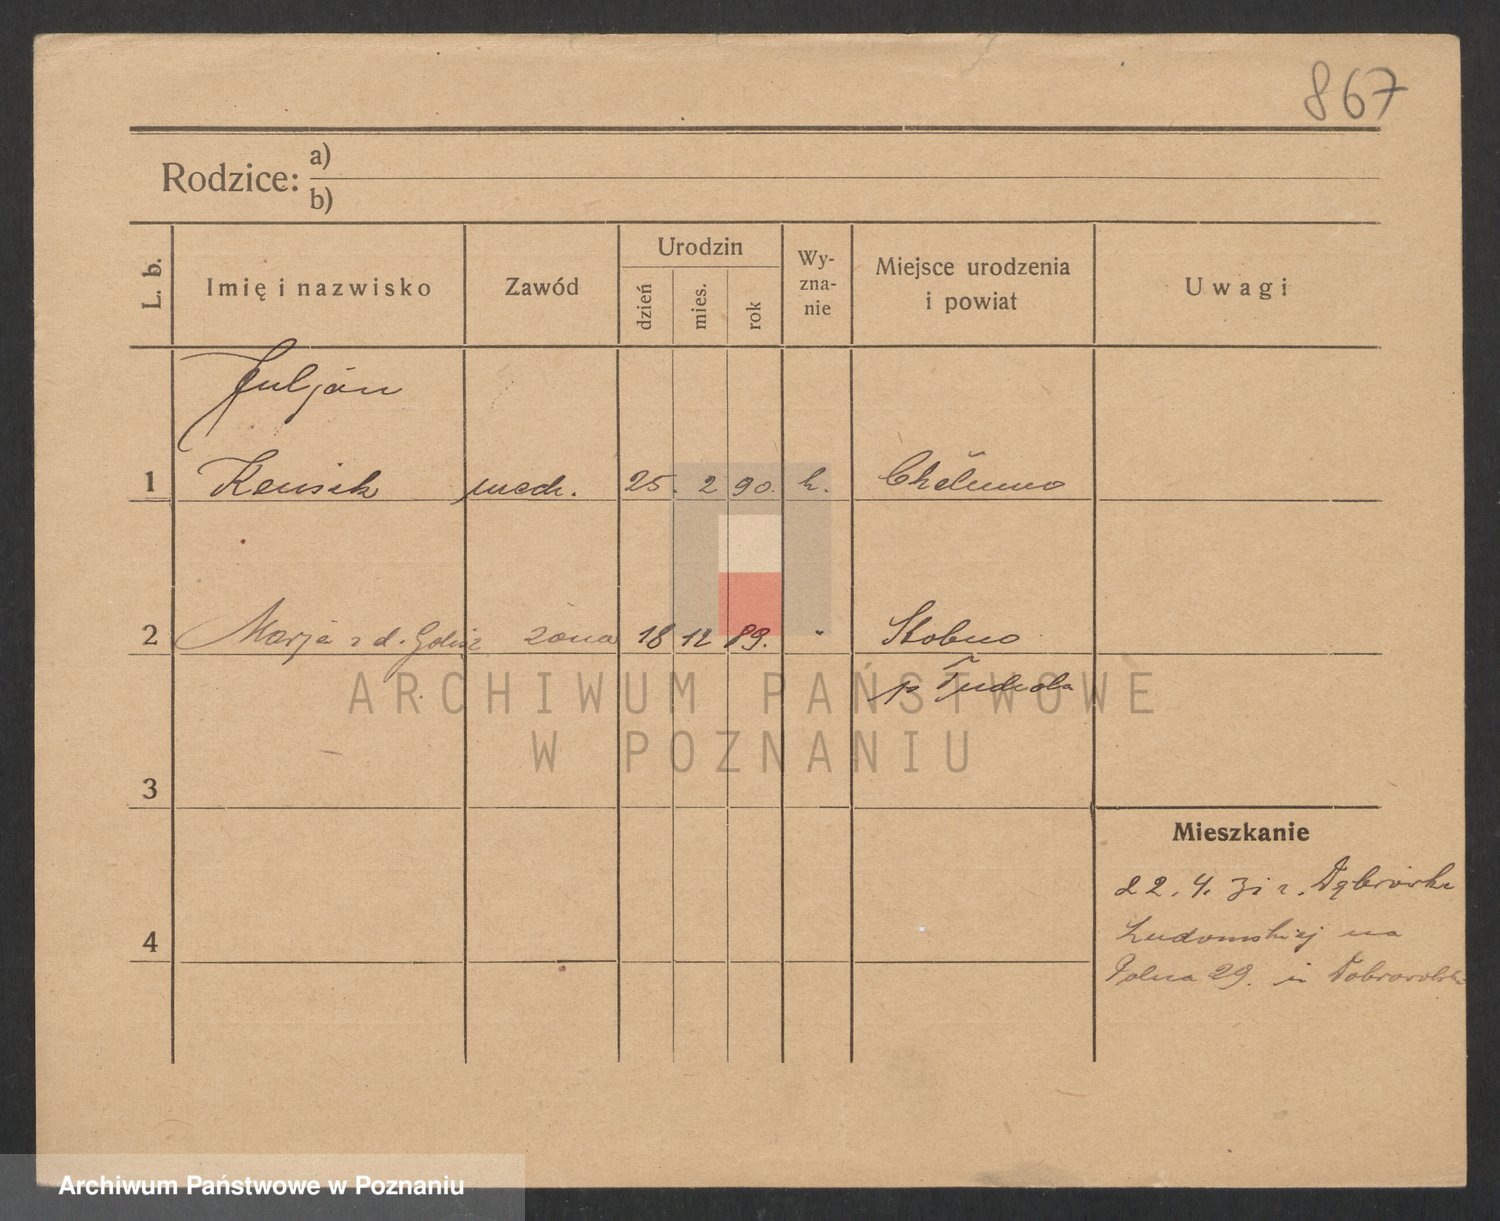 867
Rodzice: a)
b)
L. b.
Imię i nazwisko
Zawód
Urodzin
dzień
mies.
rok
Wy-
zna-
nie
Miejsce urodzenia
i powiat
Uwagi
Juljan
1 mech. 25. 2 90. k. Chełmno
2 Marja z d. żona 18 12 89. " Stobno
p Tuchola
3
Mieszkanie
22. 4. 31 z. Dąbrówka
Ludomskiej na
4
Polna 29.
ARCHIWUM PAŃSTWOWE
W POZNANIU
Archiwum Państwowe w Poznaniu